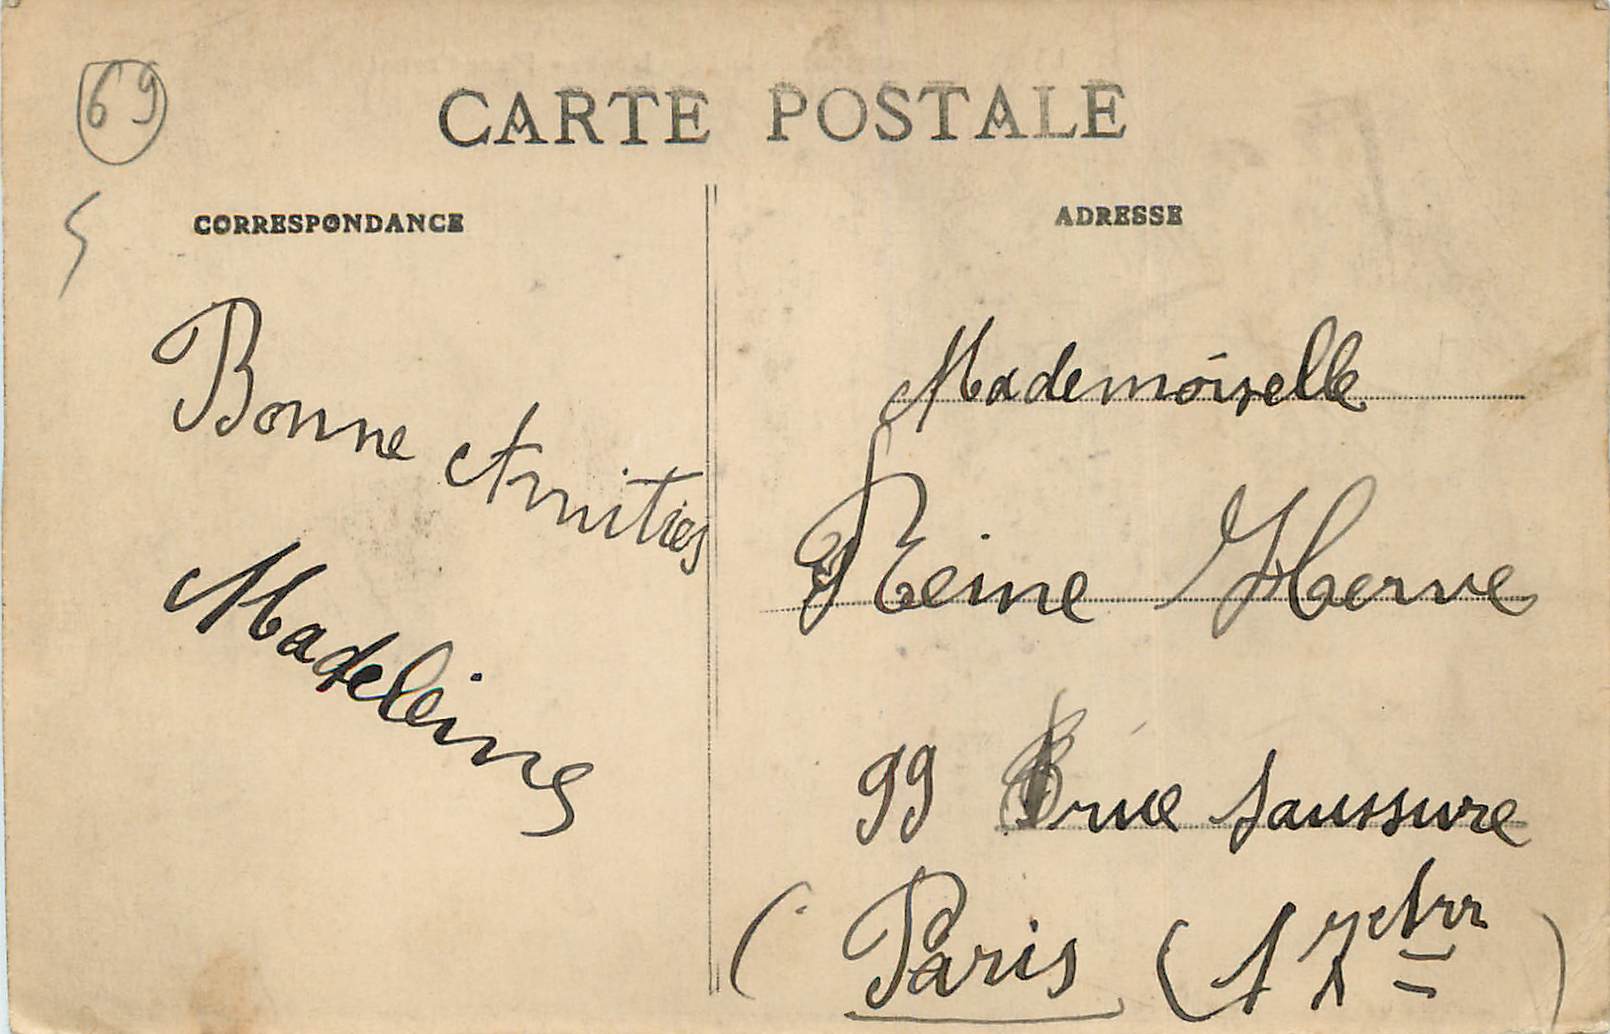 69
CARTE POSTALE
CORRESPONDANCE
ADRESSE
Bonne Amitiés
Madeleine
Mademoiselle
Reine Herve
99 rue Saussure
( Paris (17e Arr )